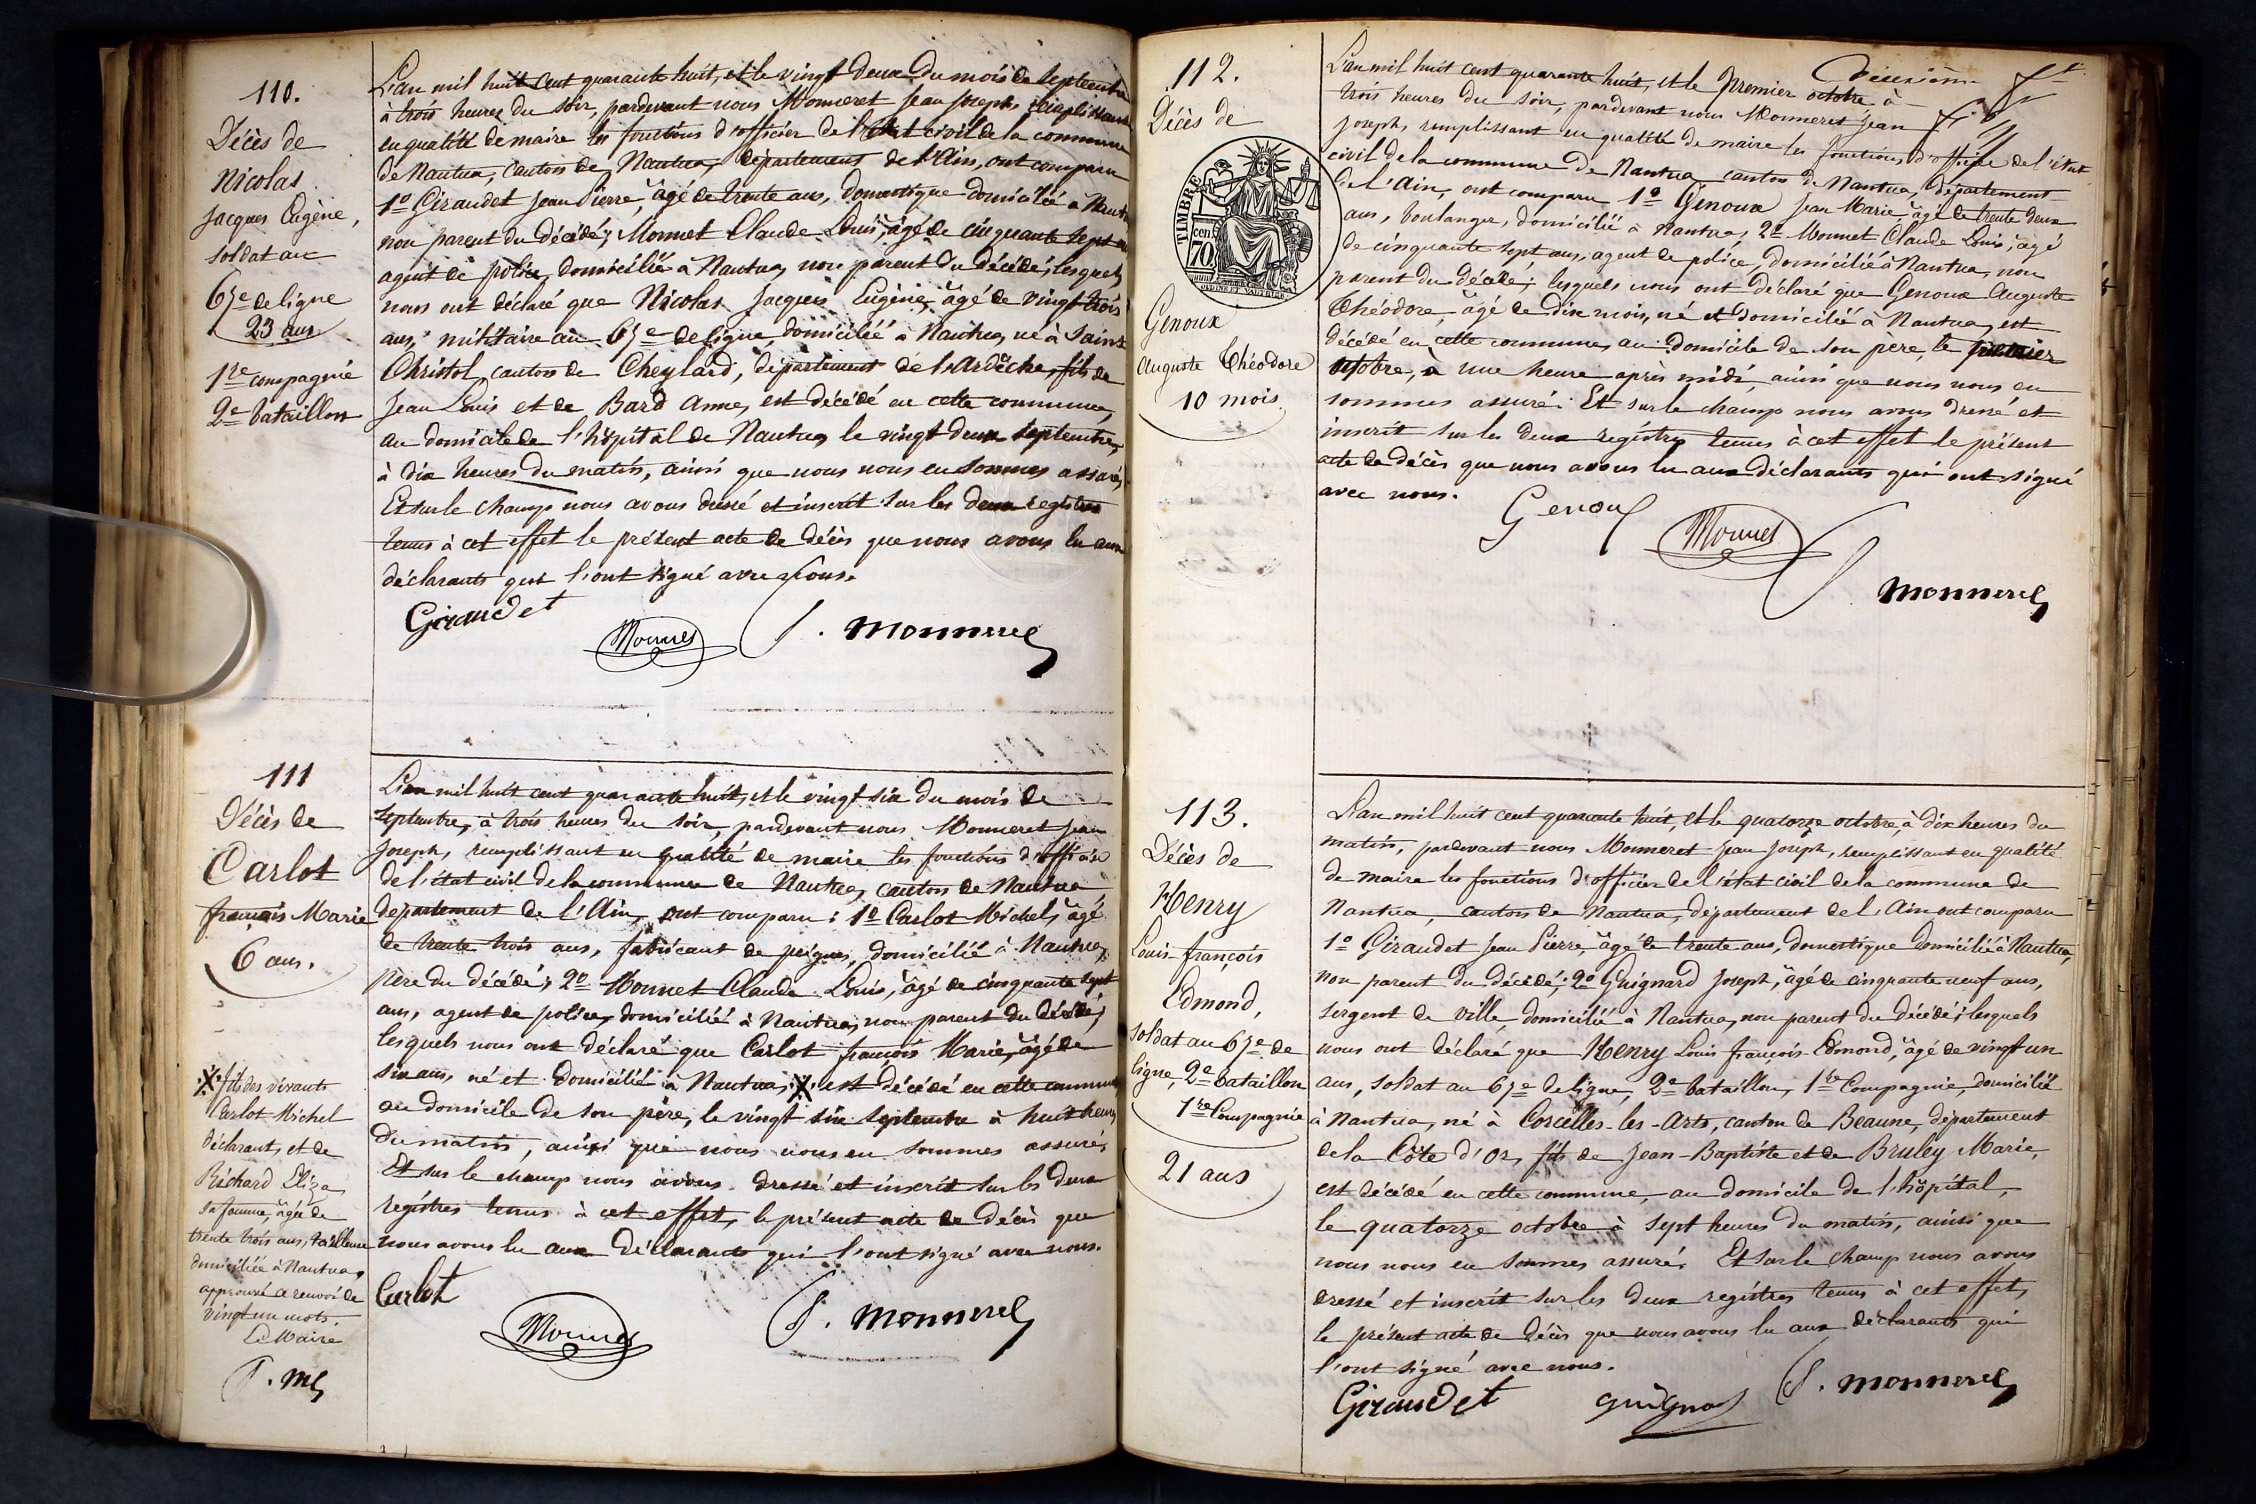 110.
Décès de
Nicolas
Jacques Eugène,
soldat au
67e de ligne
23 ans
1re compagnie
2e bataillon
L'an mil huit cent quarante huit, et le vingt deux du mois de septembre
à trois heures du soir, pardevant nous Monneret Jean Joseph, remplissant
en qualité de maire les fonctions d'officier de l'état civil de la commune
de Nantua, canton de Nantua, département de l'Ain, ont comparu
1º Giraudet Jean Pierre, âgé de trente ans, domestique domicilié à Nantua
non parent du décédé; Monnet Claude Louis, âgé de cinquante sept ans
agent de police, domicilié à Nantua, non parent du décédé, lesquels
nous ont déclaré que Nicolas Jacques Eugène, âgé de vingt trois
ans, militaire au 67e de ligne, domicilié à Nantua, né à Saint
Christol, canton de Cheylard, département de l'Ardèche, fils de
Jean Louis et de Bard Anne, est décédé en cette commune,
au domicile de l'hôpital de Nantua, le vingt deux septembre,
à dix heures du matin, ainsi que nous nous en sommes assuré,
Et sur le champ nous avons dressé et inscrit sur les deux registres
tenus à cet effet le présent acte de décès que nous avons lu aux
déclarants qui l'ont signé avec nous.
Giraudet
Monnet
J. Monneret
111
Décès de
Carlot
françois Marie
6 ans.
X fils des vivants
Carlot Michel
déclarant, et de
Richard Eliza
sa femme, âgée de
trente trois ans, tailleuse
domiciliée à Nantua,
approuvé le renvoi de
vingt un mots.
Le Maire
J. M
L'an mil huit cent quarante huit, et le vingt six du mois de
septembre, à trois heures du soir, pardevant nous Monneret Jean
Joseph, remplissant en qualité de maire les fonctions d'officier
de l'état civil de la commune de Nantua, canton de Nantua
département de l'Ain, ont comparu: 1º Carlot Michel, âgé
de trente trois ans, fabricant de peignes, domicilié à Nantua,
père du décédé; 2º Monnet Claude Louis, âgé de cinquante sept
ans, agent de police, domicilié à Nantua, non parent du décédé;
lesquels nous ont déclaré que Carlot françois Marie, âgé de
six ans, né et domicilié à Nantua, X est décédé en cette commune
au domicile de son père, le vingt six septembre à huit heures
du matin, ainsi que nous nous en sommes assuré;
Et sur le champ nous avons dressé et inscrit sur les deux
registres tenus à cet effet, le présent acte de décès que
nous avons lu aux déclarants qui l'ont signé avec nous.
Carlot
Monnet
J. Monneret
112.
Décès de
TIMBRE
70 cent
Genoux
Auguste Théodore
10 mois
L'an mil huit cent quarante huit, et le premier octobre à
trois heures du soir, pardevant nous Monneret Jean
Joseph, remplissant en qualité de maire les fonctions d'officier de l'état
civil de la commune de Nantua canton de Nantua, département
de l'Ain, ont comparu 1º Genoux Jean Marie, âgé de trente deux
ans, boulanger, domicilié à Nantua; 2º Monnet Claude Louis, âgé
de cinquante sept ans, agent de police, domicilié à Nantua, non
parent du décédé; lesquels nous ont déclaré que Genoux Auguste
Théodore, âgé de dix mois, né et domicilié à Nantua, est
décédé en cette commune, au domicile de son père, le premier
octobre, à une heure après midi, ainsi que nous nous en
sommes assuré. Et sur le champ nous avons dressé et
inscrit sur les deux registres tenus à cet effet le présent
acte de décès que nous avons lu aux déclarants qui ont signé
avec nous.
Genoux
Monnet
J. Monneret
113.
Décès de
Henry
Louis-françois
Edmond,
soldat au 67e de
ligne, 2e bataillon
1re Compagnie
21 ans
L'an mil huit cent quarante huit, et le quatorze octobre, à dix heures du
matin, pardevant nous Monneret Jean Joseph, remplissant en qualité
de maire les fonctions d'officier de l'état civil de la commune de
Nantua, canton de Nantua, département de l'Ain ont comparu
1º Giraudet Jean Pierre, âgé de trente ans, domestique domicilié à Nantua,
non parent du décédé; 2º Guignard Joseph, âgé de cinquante neuf ans,
sergent de ville, domicilié à Nantua, non parent du décédé; lesquels
nous ont déclaré que Henry Louis françois Edmond, âgé de vingt un
ans, soldat au 67e de ligne, 2e bataillon, 1re Compagnie, domicilié
à Nantua, né à Corcelles-les-Arts, canton de Beaune, département
de la Côte d'Or, fils de Jean-Baptiste et de Bruley Marie,
est décédé en cette commune, au domicile de l'hôpital,
le quatorze octobre à sept heures du matin, ainsi que
nous nous en sommes assuré. Et sur le champ nous avons
dressé et inscrit sur les deux registres tenus à cet effet,
le présent acte de décès que nous avons lu aux déclarants qui
l'ont signé avec nous.
Giraudet
Guignard
J. Monneret